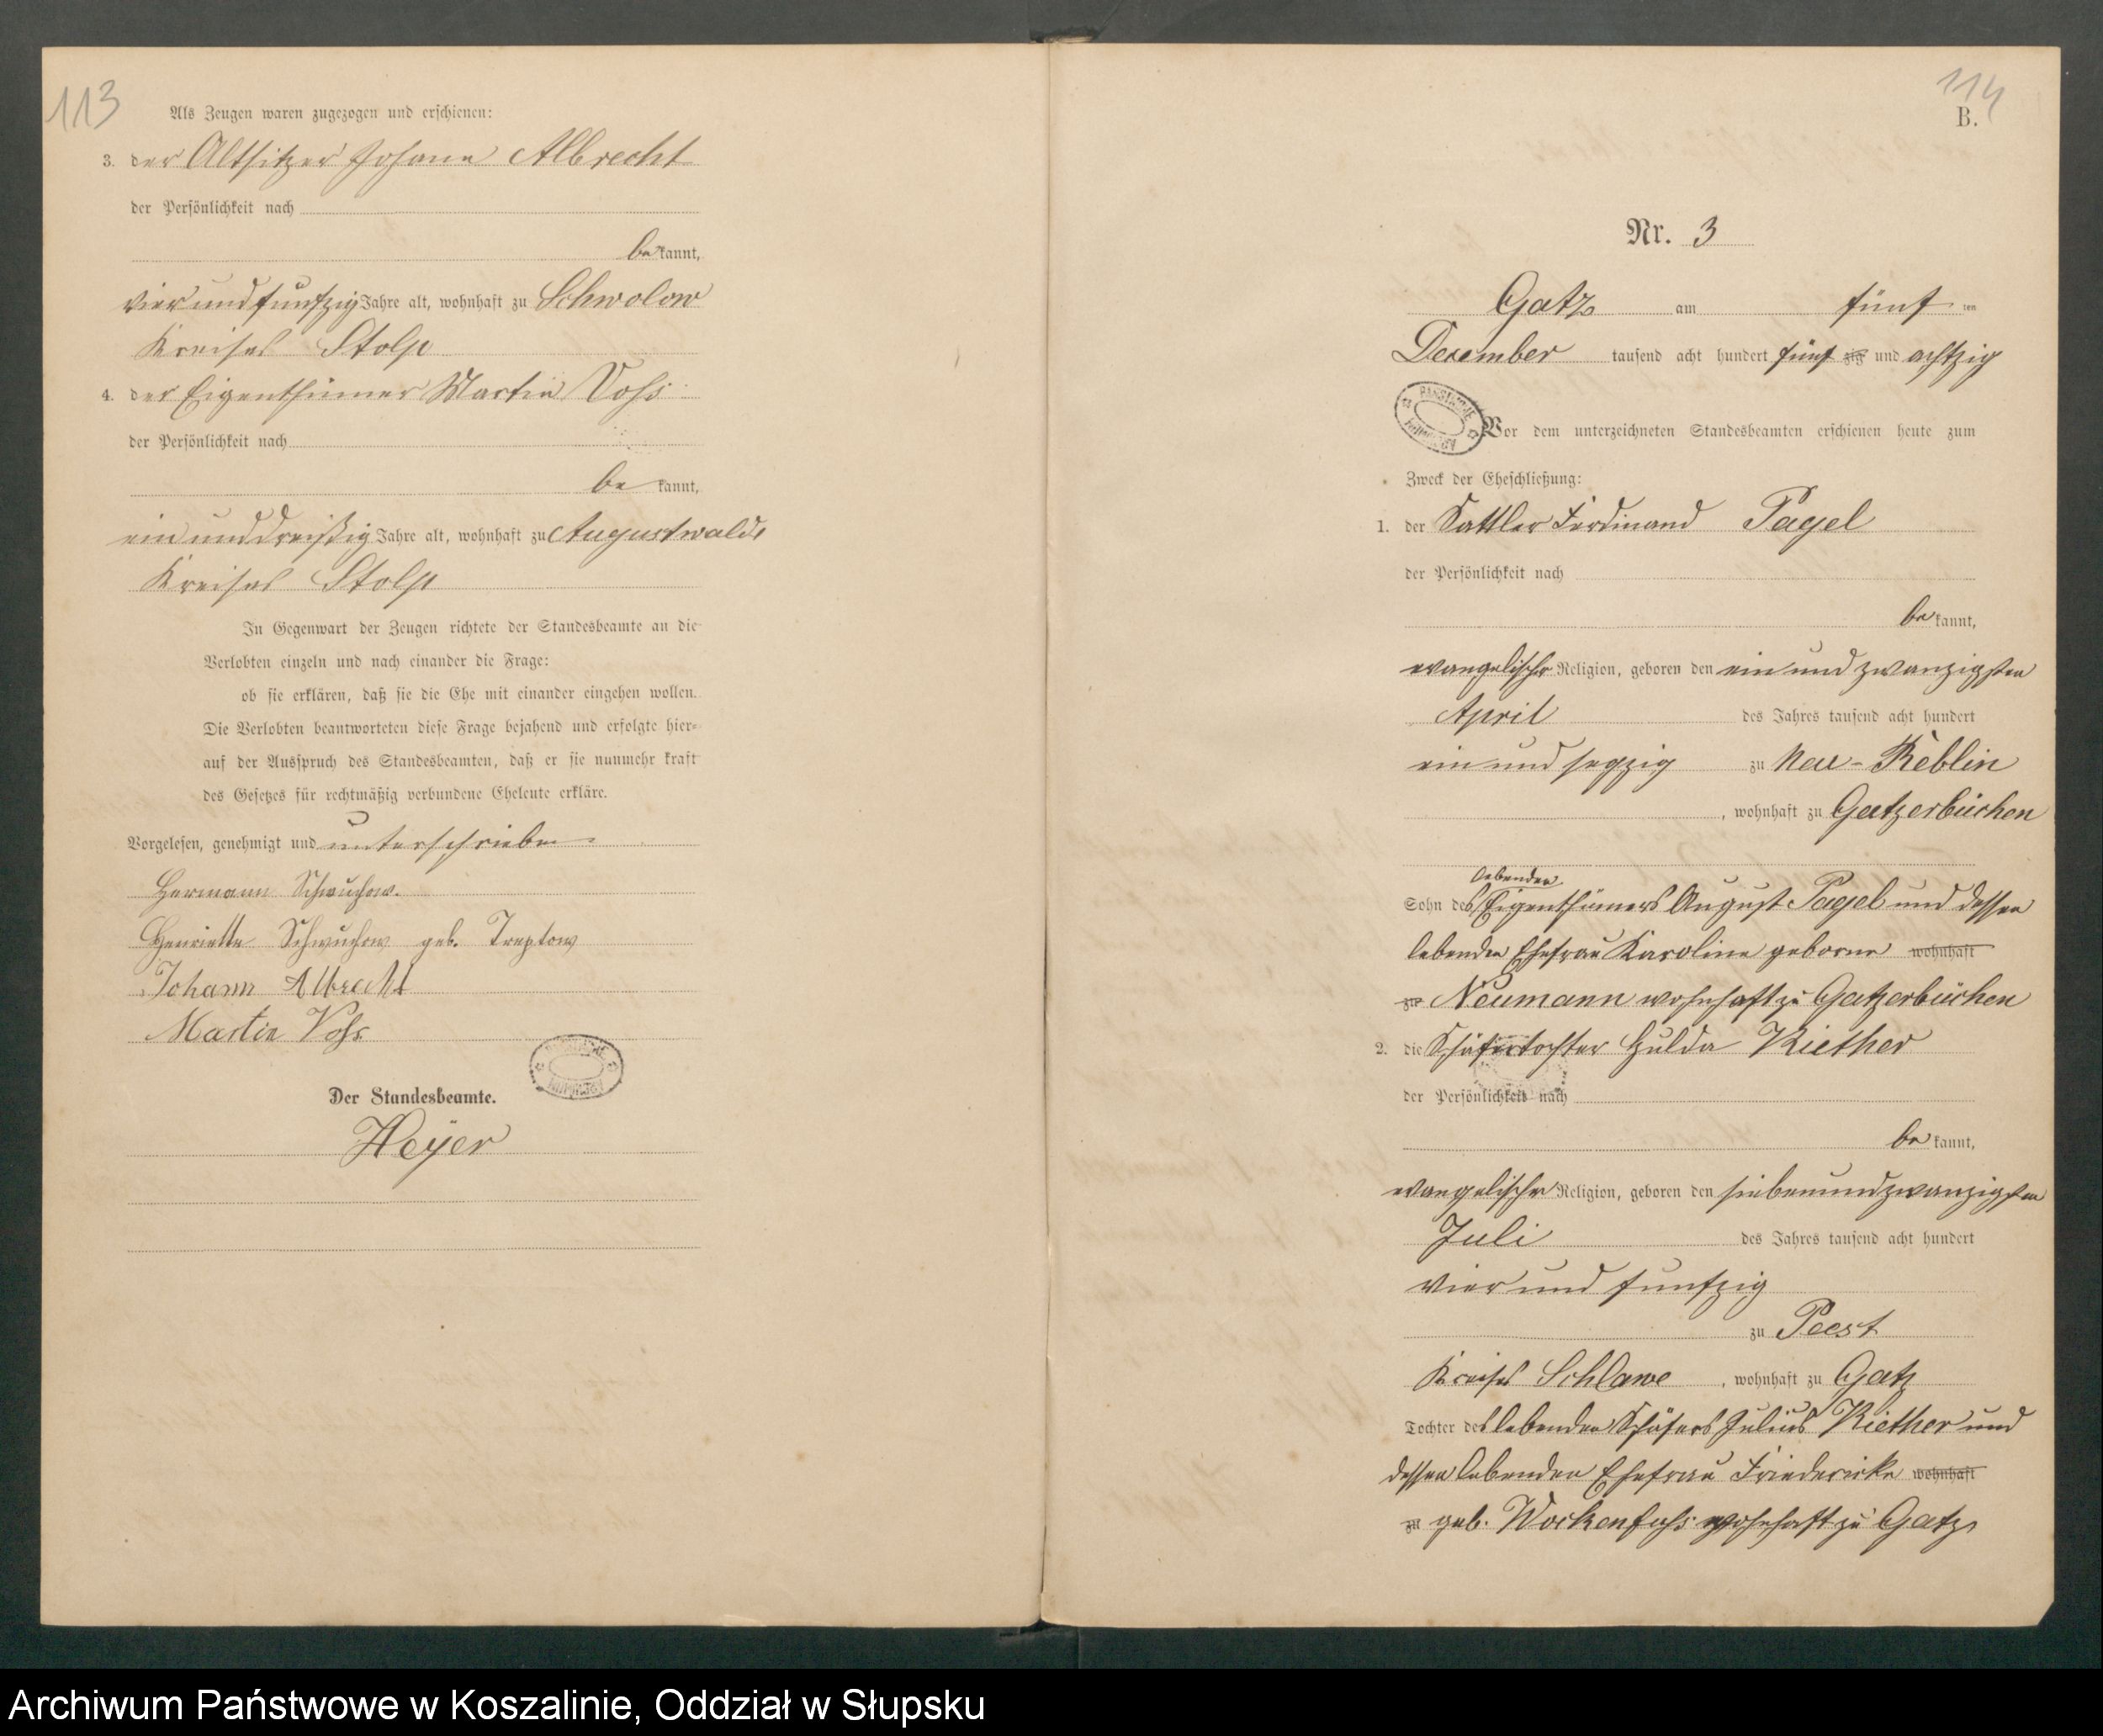 113
Als Zeugen waren zugezogen und erschienen:
3. der Altsitzer Johann Albrecht
der Persönlichkeit nach
bekannt,
vier und funfzig Jahre alt, wohnhaft zu Schwolow
Kreises Stolp
4. der Eigenthümer Martin Voss
der Persönlichkeit nach
be kannt,
ein und dreißig Jahre alt, wohnhaft zu Augustwalde
Kreises Stolp
In Gegenwart der Zeugen richtete der Standesbeamte an die
Verlobten einzeln und nach einander die Frage:
ob sie erklären, daß sie die Ehe mit einander eingehen wollen.
Die Verlobten beantworteten diese Frage bejahend und erfolgte hier=
auf der Ausspruch des Standesbeamten, daß er sie nunmehr kraft
des Gesetzes für rechtmäßig verbundene Eheleute erkläre.
Vorgelesen, genehmigt und unterschrieben
Hermann Schwuchow.
Henriette Schwuchow geb. Treptow
Johann Albrecht
Martin Voss
Der Standesbeamte.
Heyer
114
B.
Nr. 3
Gatz am fünf ten
Dezember tausend acht hundert fünf zig und achtzig
Vor dem unterzeichneten Standesbeamten erschienen heute zum
Zweck der Eheschließung:
1. der Sattler Ferdinand Pagel
der Persönlichkeit nach
be kannt,
evangelischer Religion, geboren den ein und zwanzigsten
April des Jahres tausend acht hundert
ein und sechzig zu Neu-Reblin
, wohnhaft zu Gatzerbüchen
lebenden
Sohn des Eigenthümers August Pagel und dessen
lebenden Ehefrau Karoline geborne wohnhaft
zu Neumann wohnhaft zu Gatzerbüchen
2. die Schäfertochter Hulda Riether
der Persönlichkeit nach
be kannt,
evangelischer Religion, geboren den siebenundzwanzigsten
Juli des Jahres tausend acht hundert
vier und funfzig
zu Peest
Kreises Schlawe , wohnhaft zu Gatz
Tochter des lebenden Schäfers Julius Riether und
dessen lebenden Ehefrau Friedericke wohnhaft
zu geb. Wockenfuss wohnhaft zu Gatz
Archiwum Państwowe w Koszalinie, Oddział w Słupsku